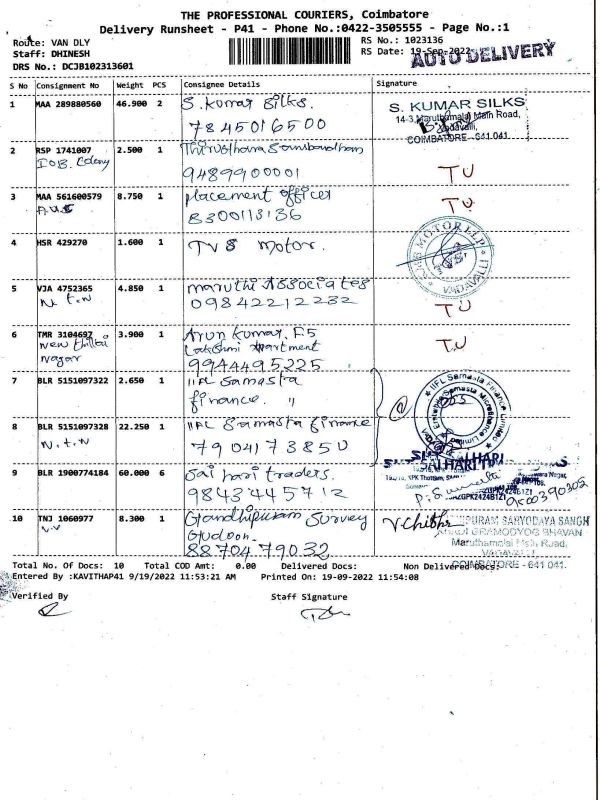 THE PROFESSIONAL COURIERS, Coimbatore
Delivery Runsheet - P41 - Phone No.:0422-3505555 - Page No.:1
Route: VAN DLY
RS No.: 1023136
Staff: DHINESH
RS Date: 19-Sep-2022
AUTO DELIVERY
DRS No.: DCJB102313601
S No Consignment No Weight PCS Consignee Details Signature
1 MAA 289880560 46.900 2 S. Kumar Silks.
7845016500
S. KUMAR SILKS
14-3, Maruthamalai Main Road,
Vadavalli,
COIMBATORE - 641 041.
2 RSP 1741007 2.500 1
IOB. Colony
9489900001
TU
3 MAA 561600579 8.750 1 placement officer
8300113136
TU
4 HSR 429270 1.600 1 TVS motor.
MOTOR LLP
VADAVALLI
5 VJA 4752365 4.850 1 maruthi Associates
N.T.N 09842212232
TU
6 TMR 3104697 3.900 1 Arun Kumar. F5
New Thillai Lakshmi Apartment
Nagar 9944495225
T.U
7 BLR 5151097322 2.650 1 IIFL Samasta
finance. "
IIFL Samasta Finance Limited
8 BLR 5151097328 22.250 1 IIFL Samasta finance
N.T.N 7904173850
9 BLR 1900774184 60.000 6 Sai hari traders.
9843445712
SALHARI
9600390302
10 TNJ 1060977 8.300 1 Gandhipuram Survey
V.V Gudoon.
8870479032
SARVODAYA SANGH
GRAMODYOG BHAVAN
Maruthamalai Main Road,
VADAVALLI,
COIMBATORE - 641 041.
Total No. Of Docs: 10 Total COD Amt: 0.00 Delivered Docs: Non Delivered Docs:
Entered By :KAVITHAP41 9/19/2022 11:53:21 AM Printed On: 19-09-2022 11:54:08
Verified By Staff Signature